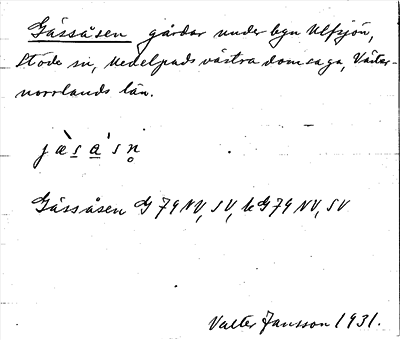 Gässåsen gårdar under byn Ulfsjön,
Stöde sn, Medelpads västra domsaga, Väster-
norrlands län.
jæ̀sa̍sn̥
Gässåsen G 79 NV, SV, k G 79 NV, SV
Valter Jansson 1931.